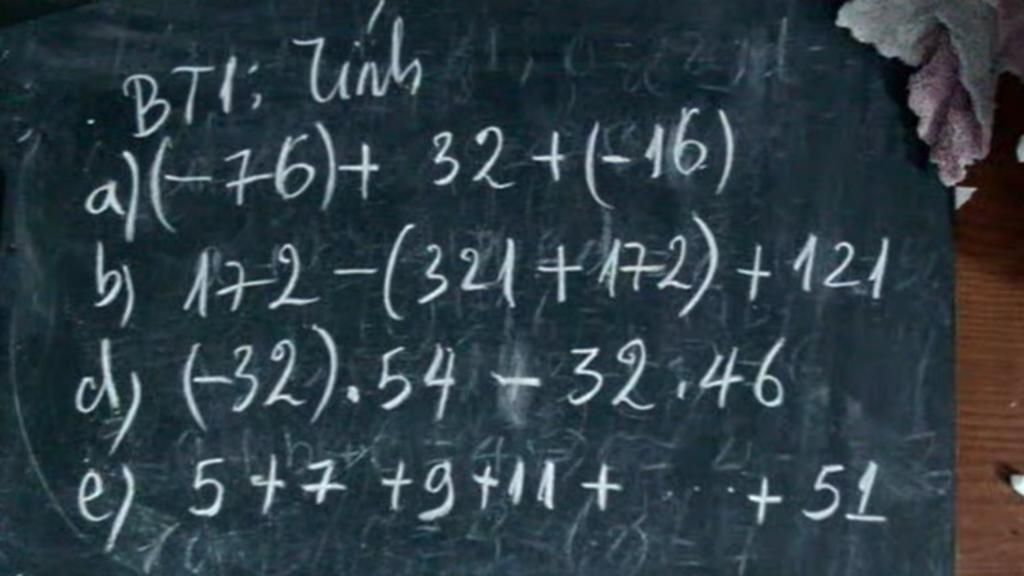 BT1: Tính
a) (-76) + 32 + (-16)
b) 172 - (321 + 172) + 121
d) (-32) . 54 - 32 . 46
e) 5 + 7 + 9 + 11 + ... + 51